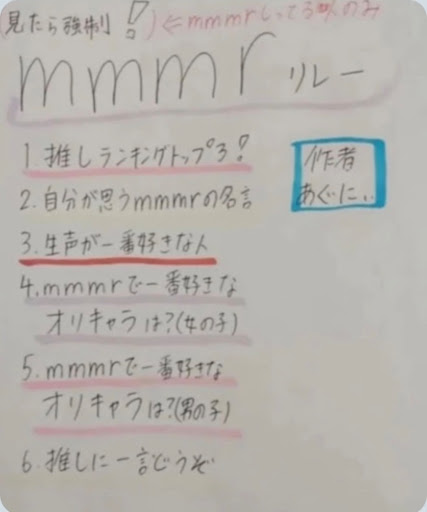 (見たら強制!) ⇐mmmrしってる人のみ
mmmrリレー
1.推しランキングトップ3!
作者
あぐにぃ
2.自分が思うmmmrの名言
3.生声が一番好きな人
4.mmmrで一番好きな
オリキャラは?(女の子)
5.mmmrで一番好きな
オリキャラは?(男の子)
6.推しに一言どうぞ